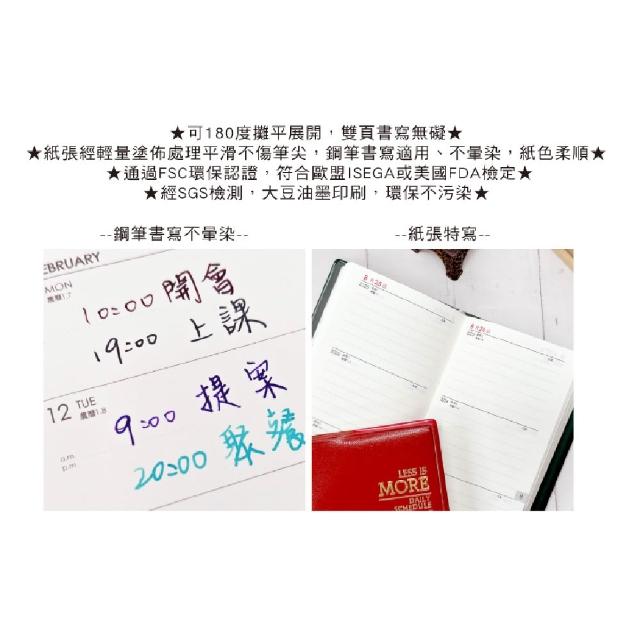 ★可180度攤平展開，雙頁書寫無礙★
★紙張經輕量塗佈處理平滑不傷筆尖，鋼筆書寫適用、不暈染，紙色柔順★
★通過FSC環保認證，符合歐盟ISEGA或美國FDA檢定★
★經SGS檢測，大豆油墨印刷，環保不污染★
--鋼筆書寫不暈染--
EBRUARY
MON
農曆1.7
10:00 開會
19:00 上課
12 TUE
農曆1.8
a.m.
p.m.
9:00 提案
20:00 聚餐
--紙張特寫--
LESS IS
MORE
DAILY
SCHEDULE